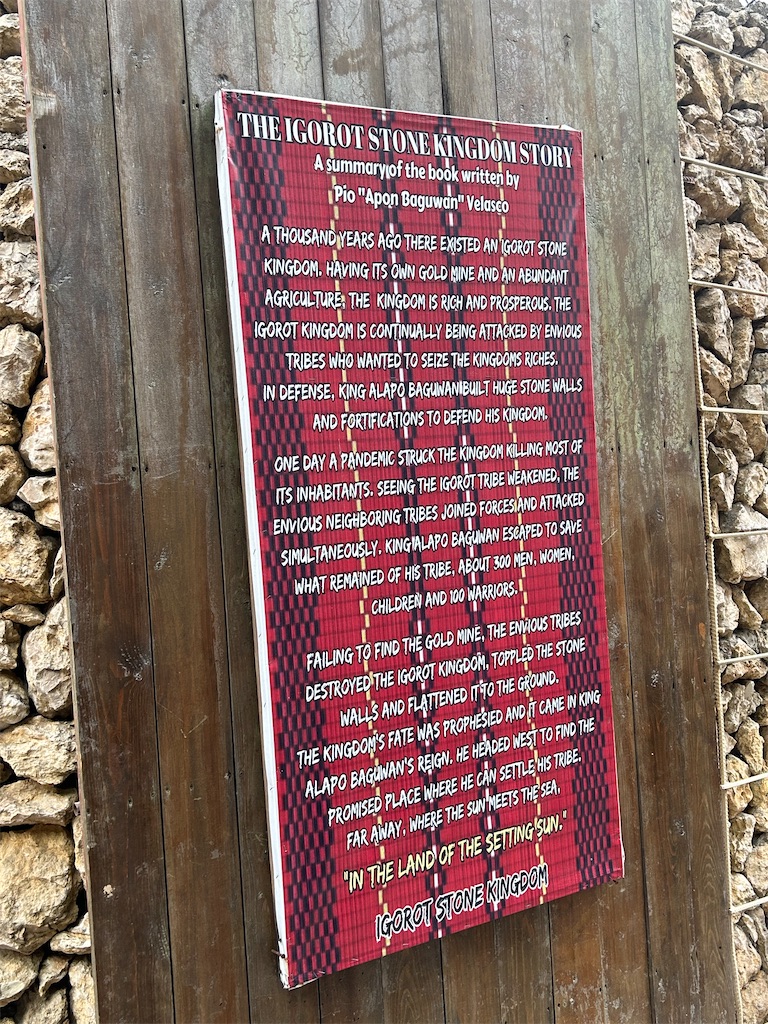 THE IGOROT STONE KINGDOM STORY
A summary of the book written by
Pio "Apon Baguwan" Velasco
A THOUSAND YEARS AGO THERE EXISTED AN IGOROT STONE
KINGDOM. HAVING ITS OWN GOLD MINE AND AN ABUNDANT
AGRICULTURE, THE KINGDOM IS RICH AND PROSPEROUS. THE
IGOROT KINGDOM IS CONTINUALLY BEING ATTACKED BY ENVIOUS
TRIBES WHO WANTED TO SEIZE THE KINGDOMS RICHES.
IN DEFENSE, KING ALAPO BAGUWAN BUILT HUGE STONE WALLS
AND FORTIFICATIONS TO DEFEND HIS KINGDOM.
ONE DAY A PANDEMIC STRUCK THE KINGDOM KILLING MOST OF
ITS INHABITANTS. SEEING THE IGOROT TRIBE WEAKENED, THE
ENVIOUS NEIGHBORING TRIBES JOINED FORCES AND ATTACKED
SIMULTANEOUSLY. KING ALAPO BAGUWAN ESCAPED TO SAVE
WHAT REMAINED OF HIS TRIBE, ABOUT 300 MEN, WOMEN,
CHILDREN AND 100 WARRIORS.
FAILING TO FIND THE GOLD MINE, THE ENVIOUS TRIBES
DESTROYED THE IGOROT KINGDOM, TOPPLED THE STONE
WALLS AND FLATTENED IT TO THE GROUND.
THE KINGDOM'S FATE WAS PROPHESIED AND IT CAME IN KING
ALAPO BAGUWAN'S REIGN. HE HEADED WEST TO FIND THE
PROMISED PLACE WHERE HE CAN SETTLE HIS TRIBE.
FAR AWAY, WHERE THE SUN MEETS THE SEA,
"IN THE LAND OF THE SETTING SUN."
IGOROT STONE KINGDOM